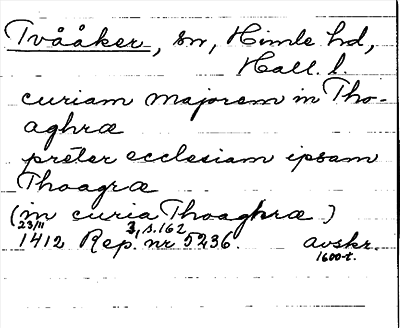 Tvååker, sn, Himle hd,
Hall. l.
curiam majorem in Tho-
aghræ
præter ecclesiam ipsam
Thoagræ
(in curia Thoaghræ)
23/11 3, s. 162
1412 Rep. nr 5236. avskr.
1600-t.